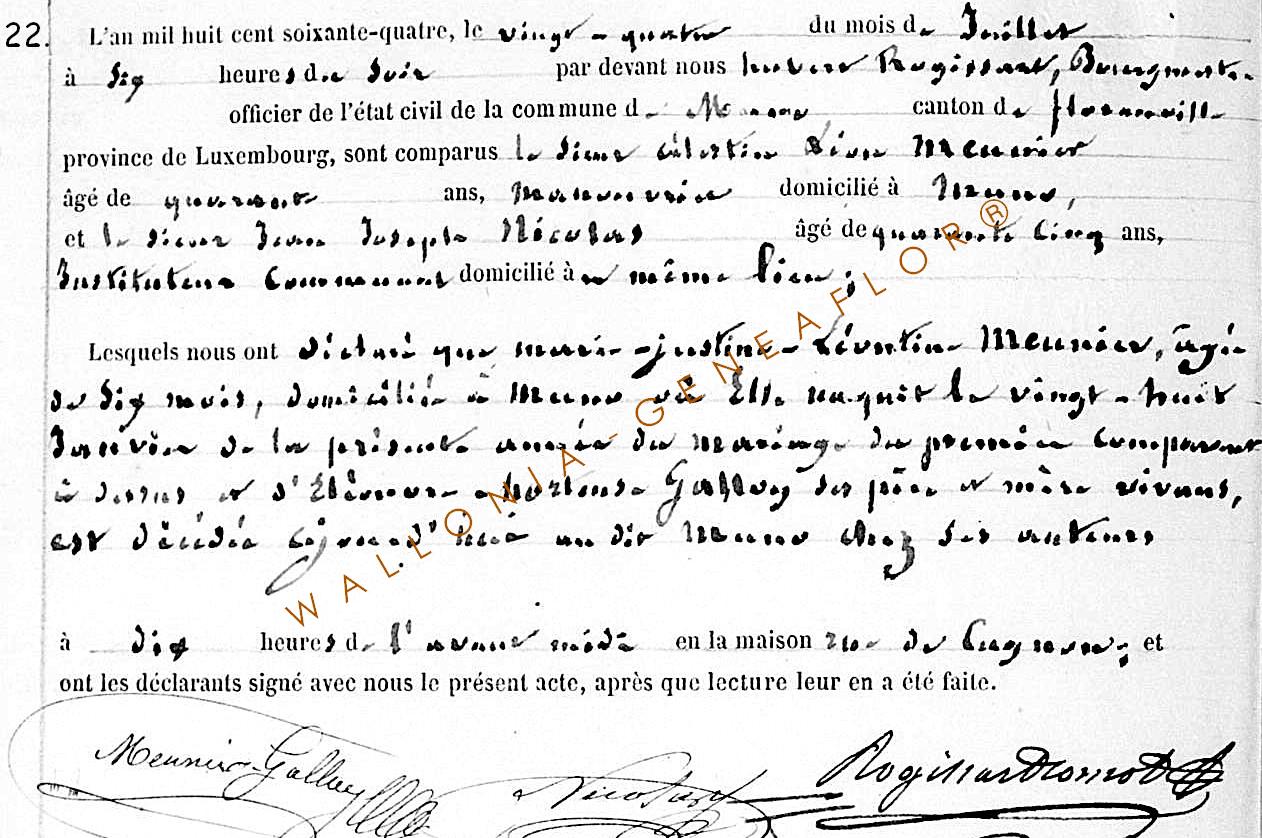 22. L'an mil huit cent soixante-quatre, le vingt-quatre du mois de Juillet
à six heures du soir par devant nous hubert Rogissart, Bourgmestre
officier de l'état civil de la commune de Muno canton de florenville
province de Luxembourg, sont comparus le sieur célestin Léon Meunier
âgé de quarante ans, manouvrier domicilié à Muno,
et le sieur Jean Joseph Nicolas âgé de quarante cinq ans,
Instituteur Communal domicilié à même lieu;
Lesquels nous ont déclaré que marie-justine-Léontine Meunier, agée
de six mois, domiciliée à Muno où Elle naquit le vingt-huit
Janvier de la présente année du mariage du premier comparant
ci dessus et d'Eléonore-hortense Galloy ses père et mère vivans,
est décédée cejourd'hui au dit Muno chez ses auteurs
à dix heures de l'avant midi en la maison rue de Cugnon; et
ont les déclarants signé avec nous le présent acte, après que lecture leur en a été faite.
Meunier-Galloy Nicolas
WALLONIA GENEAFLOR®